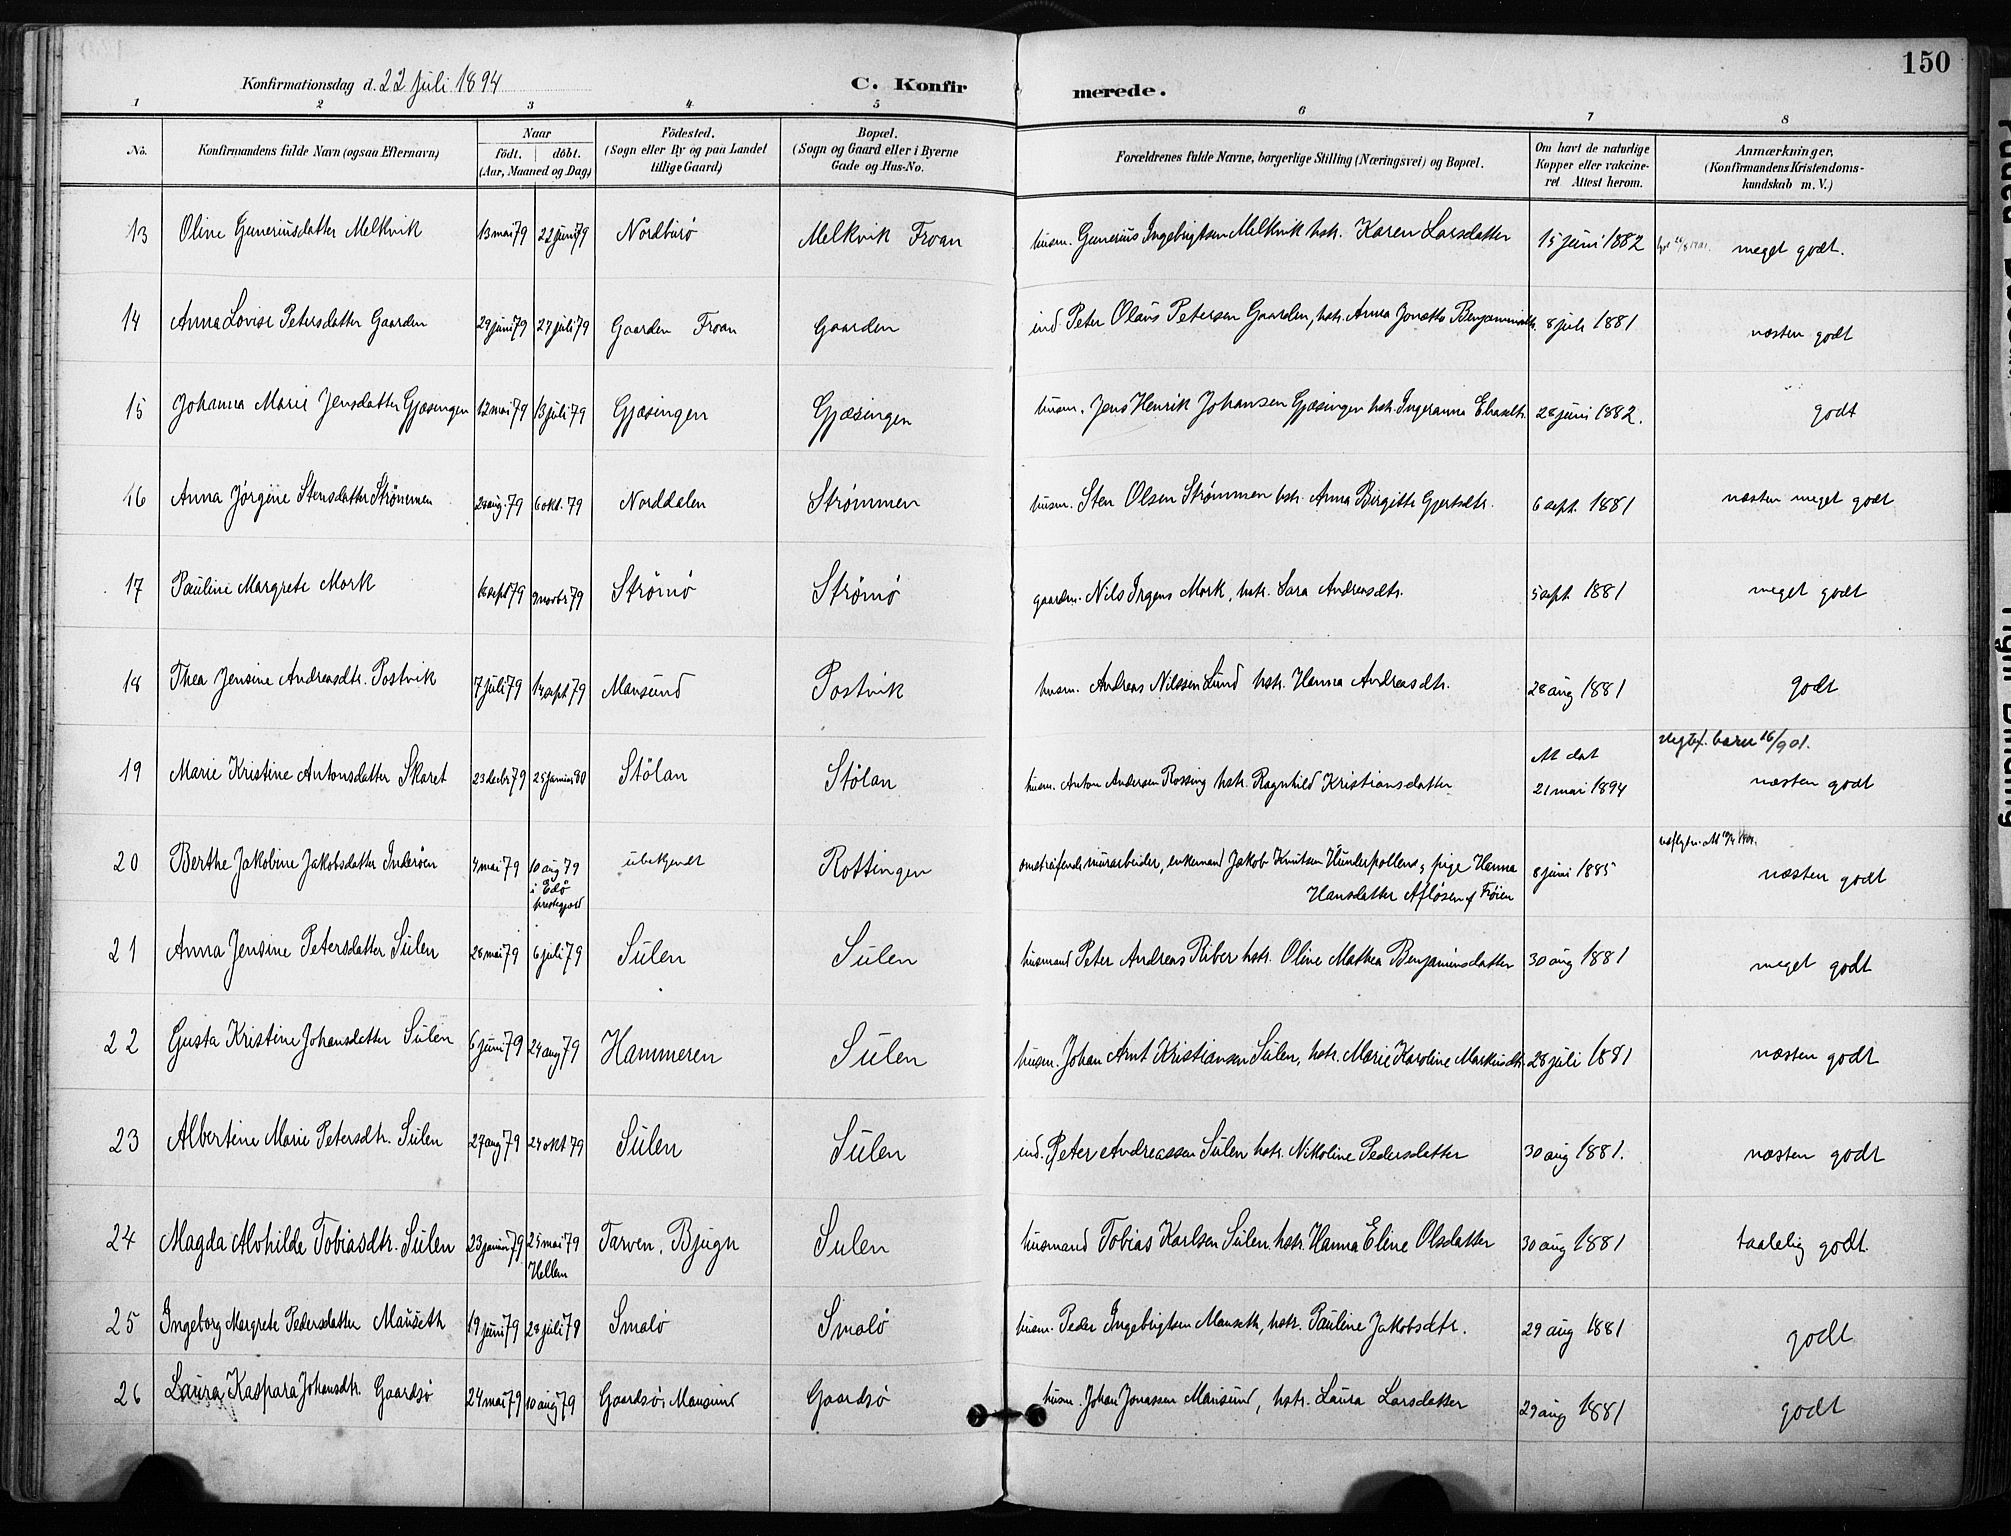 150
Konfirmationsdag d. 22 juli 1894
C. Konfirmerede.
1 2 3 4 5 6 7 8
No. | Konfirmandens fulde Navn (ogsaa Efternavn) | Naar födt. | döbt. (Aar, Maaned og Dag) | Födested. (Sogn eller By og paa Landet tillige Gaard) | Bopæl. (Sogn og Gaard eller i Byerne Gade og Hus-No. | Forældrenes fulde Navne, borgerlige Stilling (Næringsvei) og Bopæl. | Om havt de naturlige Kopper eller vakcineret Attest herom. | Anmærkninger, (Konfirmandens Kristendomskundskab m. V.)
13 Oline Guneriusdatter Melkvik 13 mai 79 22 juni 79 Nordburø Melkvik Froan husm. Gunerius Ingebrigtsen Melkvik hstr. Karen Larsdatter 15 juni 1882 meget godt.
14 Anna Lovise Petersdatter Gaarden 29 juni 79 27 juli 79 Gaarden Froan Gaarden ind Peter Olaus Petersen Gaarden, hstr. Anna Jonetta Benjaminsdtr. 8 juli 1881 næsten godt
15 Johanna Marie Jensdatter Gjæsingen 12 mai 79 13 juli 79 Gjæsingen Gjæsingen husm. Jens Henrik Johansen Gjæsingen hstr. Ingeranna Eliasdtr. 28 juni 1882. godt
16 Anna Jørgine Stensdatter Strömmen aug. 79 6 okt. 79 Norddalen Strømmen husm. Sten Olsen Strømmen hstr. Anna Birgitte Gjertsdtr. 6 sept. 1881 næsten meget godt
17 Pauline Margrete Mork 16 sept 79 9 novbr 79 Strömö Strømö gaardm. Nils Irgens Mork, hstr. Sara Andreasdtr. 5 sept. 1881 meget godt
18 Thea Jensine Andreasdtr. Postvik 7 juli 79 14 sept 79 Mausund Postvik husm. Andreas Nilssen Lund hstr. Hanna Andreasdtr. 28 aug 1881 godt
19 Marie Kristine Antonsdatter Skaret 23 decbr 79 25 januar 80 Stölan Stölan husm. Anton Andersen Rossing hstr. Ragnhild Kristiansdatter At dat 21 mai 1894 næsten godt
20 Berthe Jakobine Jakobsdatter Inderöen 4 mai 79 10 aug 79 i Edö prestegjeld ubekjendt Rottingen omstreifende murarbeider, enkemand Jakob Knutsen Hunderpollens, pige Hanna Hansdatter Afløsen af Frøien 8 juni 1885 næsten godt
21 Anna Jensine Petersdatter Sulen 28 mai 79 6 juli 79 Sulen Sulen husmand Peter Andreas Riber hstr. Oline Mathea Benjaminsdatter 30 aug 1881 meget godt
22 Gusta Kristine Johansdatter Sulen 6 juni 79 24 aug 79 Hammeren Sulen husm. Johan Arnt Kristiansen Sulen, hstr. Marie Karoline Markusdtr. 28 juli 1881 næsten godt
23 Albertine Marie Petersdtr. Sulen 27 aug 79 24 okt 79 Sulen Sulen ind. Peter Andreassen Sulen hstr. Nikoline Pedersdatter 30 aug 1881. næsten godt
24 Magda Alvhilde Tobiasdtr. Sulen 23 januar 79 25 mai 79 Tarven, Bjugn Sulen husmand Tobias Karlsen Sulen hstr. Hanna Eline Olsdatter 30 aug 1881 taalelig godt.
25 Ingeborg Margrete Pedersdatter Mauseth 19 juni 79 28 juli 79 Smalø Smalø husm. Peder Ingebrigtsen Mauseth, hstr. Pauline Jakobsdtr. 29 aug 1881 godt
26 Laura Kaspara Johansdtr. Gaardsö 24 mai 79 10 aug 79 Gaardsö, Mausund Gaardsö husm. Johan Jonassen Mausund, hstr. Laura Larsdatter 29 aug 1881 godt